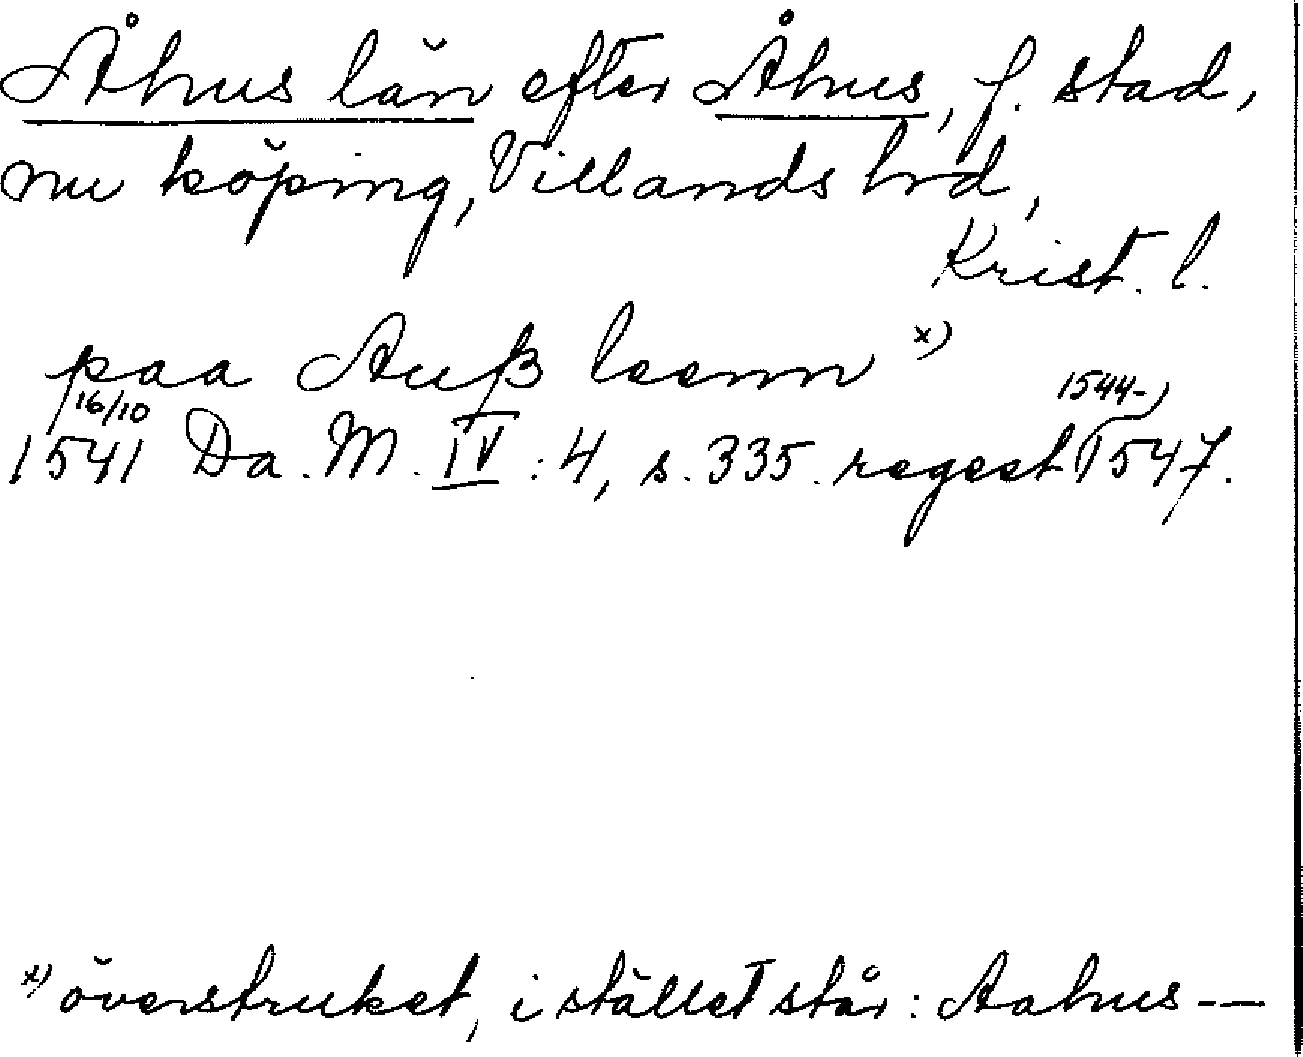 Åhus län efter Åhus, f. stad,
nu köping, Villands hrd,
Krist. l.
paa Auß leenn x)
16/10 1544-)
1541 Da. M. IV : 4, s. 335. regest 1547.
x) överstruket, i stället står: Aahus --